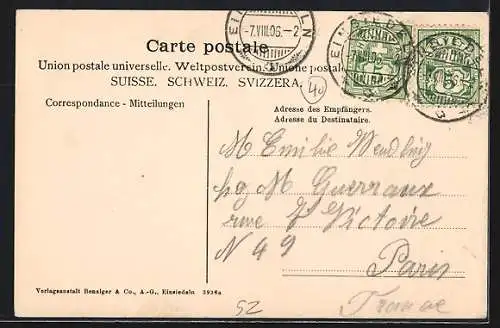 Carte postale
Union postale universelle. Weltpostverein. Unione postale
SUISSE. SCHWEIZ. SVIZZERA.
Correspondance - Mitteilungen
Adresse des Empfängers.
Adresse du Destinataire.
-7.VIII.06.-2
40
M Emilie Wendling
pg M Guerraux
rue Victoire
N 49
Paris
France
Verlagsanstalt Benziger & Co., A.-G., Einsiedeln 3936a
52